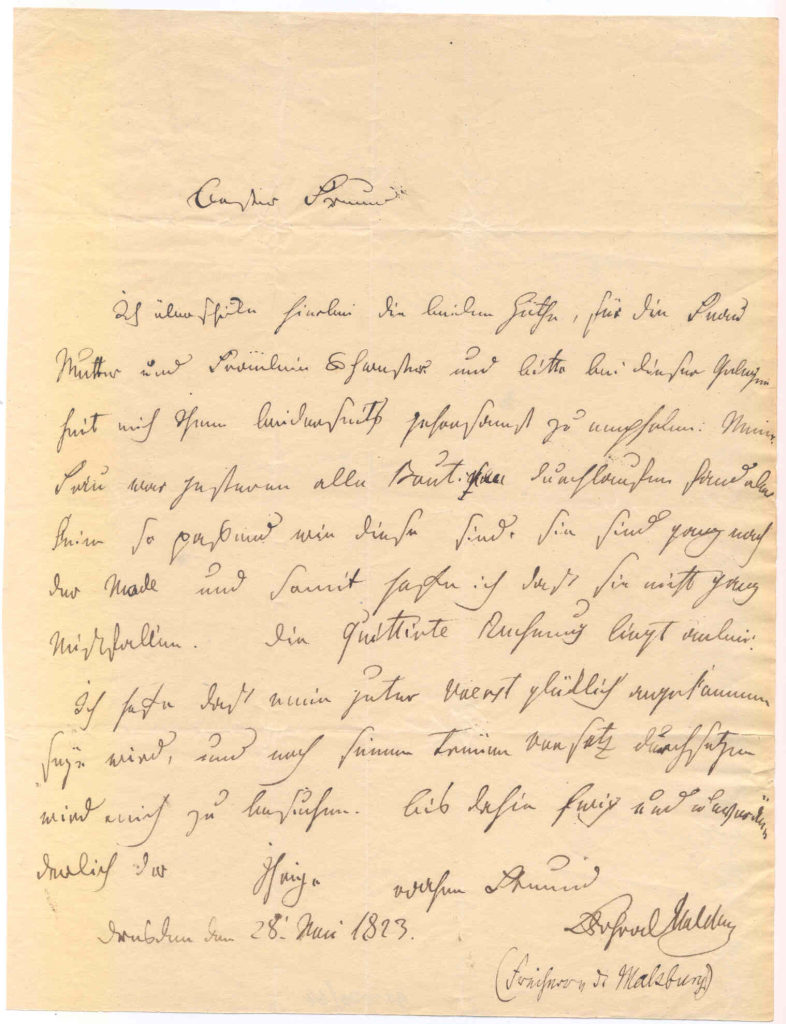 Bester Freund
Ich überschicke hierbei die beiden Hüthe, für die Frau
Mutter und Fräulein Schwester und bitte bei dieser Gelegen
heit mich Ihnen beiderseits gehorsamst zu empfehlen. Meine
Frau war gestern alle Boutiquen durchlaufen fand aber
keine so passend wie diese sind. sie sind ganz nach
der Mode und somit hoffe ich daß sie nicht ganz
Mißfallen. Die Quittirte Rechnung liegt anbei.
Ich hoffe daß mein guter glücklich angekommen
seyn wird, und nach seinem Vorsatz durchsetzen
wird mich zu besuchen. bis dahin Ewig und unverän
derlich der Ihrige Freund
Dresden den 28. Mai 1823.
(Freiherr v. d. Malsburg)